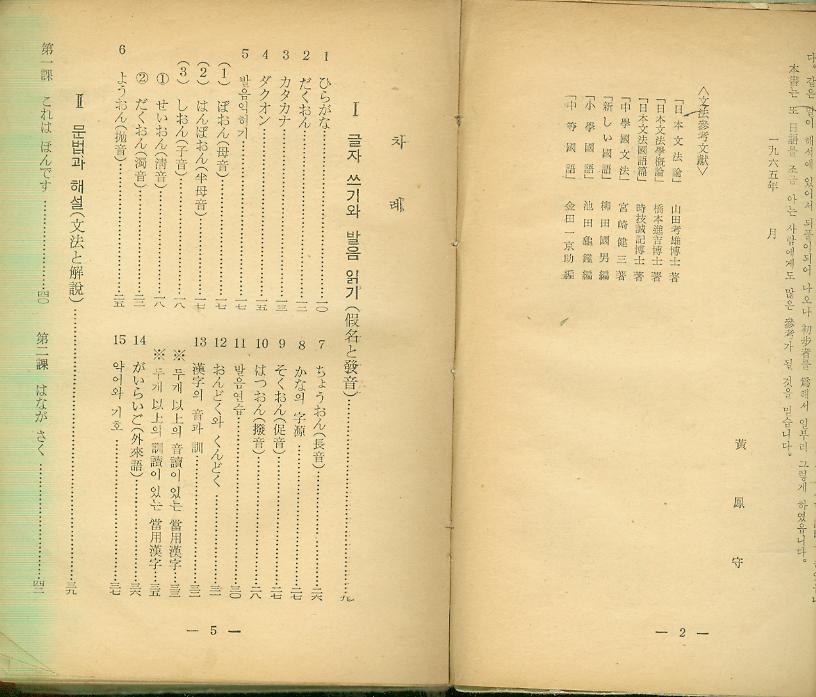 다. 같은 말이 해석에 있어서 되풀이되어 나오나 初步者를 爲해서 일부러 그렇게 하였읍니다.
本書는 또 日語를 조금 아는 사람에게도 많은 參考가 될 것을 믿습니다.
一九六五年 月
黃 鳳 守
〈文法參考文献〉
「日本文法論」 山田孝雄博士著
「日本文法學槪論」 橋本進吉博士著
「日本文法國語篇」 時技誠記博士著
「中學國文法」 宮崎健三著
「新しい國語」 柳田國男編
「小學國語」 池田龜鑑編
「中等國語」 金田一京助編
— 2 —
차 례
Ⅰ 글자 쓰기와 발음 읽기(假名と發音)……九
1 ひらがな……一〇
2 だくおん……一三
3 カタカナ……一三
4 ダクオン……一五
5 발음익히기……一七
(1) ぼおん(母音)……一七
(2) はんぼおん(半母音)……一七
(3) しおん(子音)……一八
① せいおん(淸音)……一八
② だくおん(濁音)……二三
6 ようおん(拗音)……二五
7 ちょうおん(長音)……二六
8 かなの 字源……二七
9 そくおん(促音)……二七
10 はつおん(撥音)……二八
11 발음연습……三〇
12 おんどくと くんどく……三一
13 漢字의 音과 訓……三二
※ 두개 以上의 音讀이 있는 當用漢字……三三
※ 두개 以上의 訓讀이 있는 當用漢字……三五
14 がいらいご(外來語)……三六
15 약어와 기호……三七
Ⅱ 문법과 해설(文法と解說)……三九
第一課 これは ほんです……四〇
第二課 はなが さく……四二
— 5 —